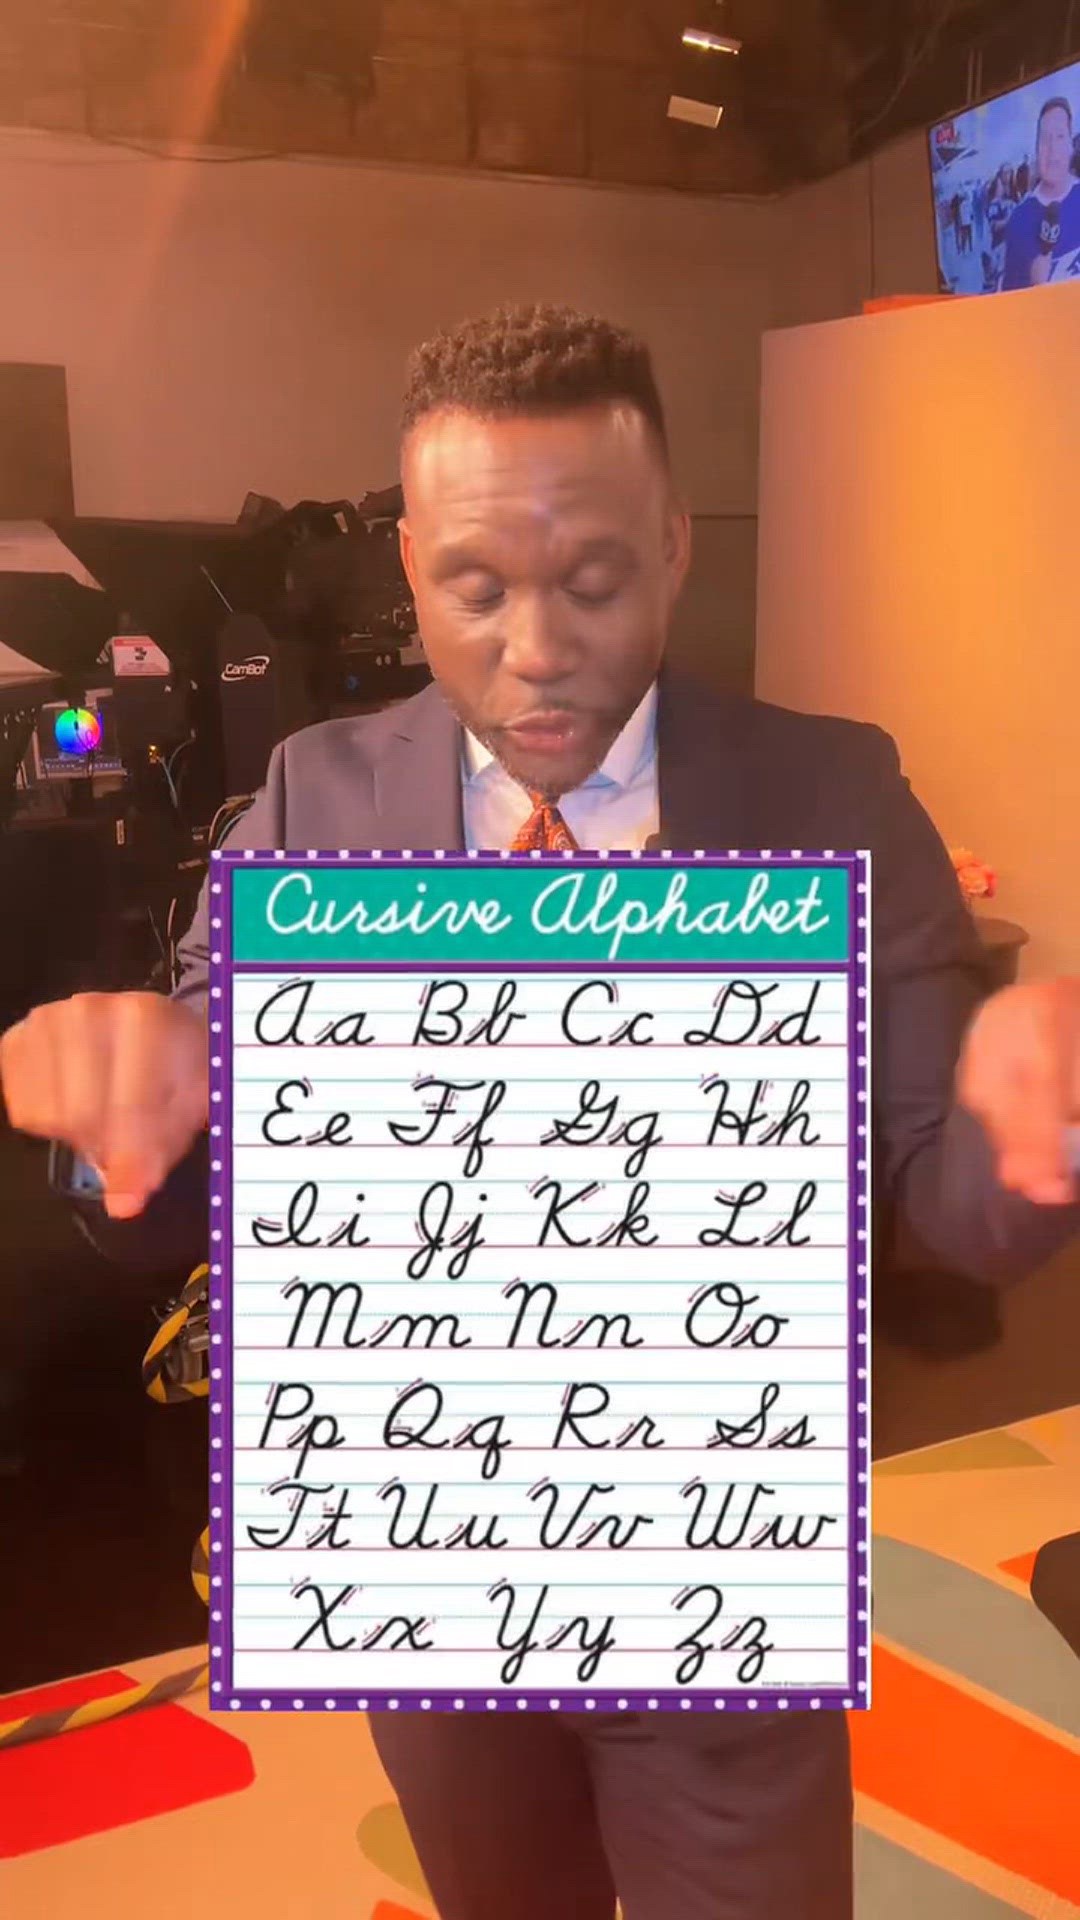 CamBot
Cursive Alphabet
Aa Bb Cc Dd
Ee Ff Gg Hh
Ii Jj Kk Ll
Mm Nn Oo
Pp Qq Rr Ss
Tt Uu Vv Ww
Xx Yy Zz